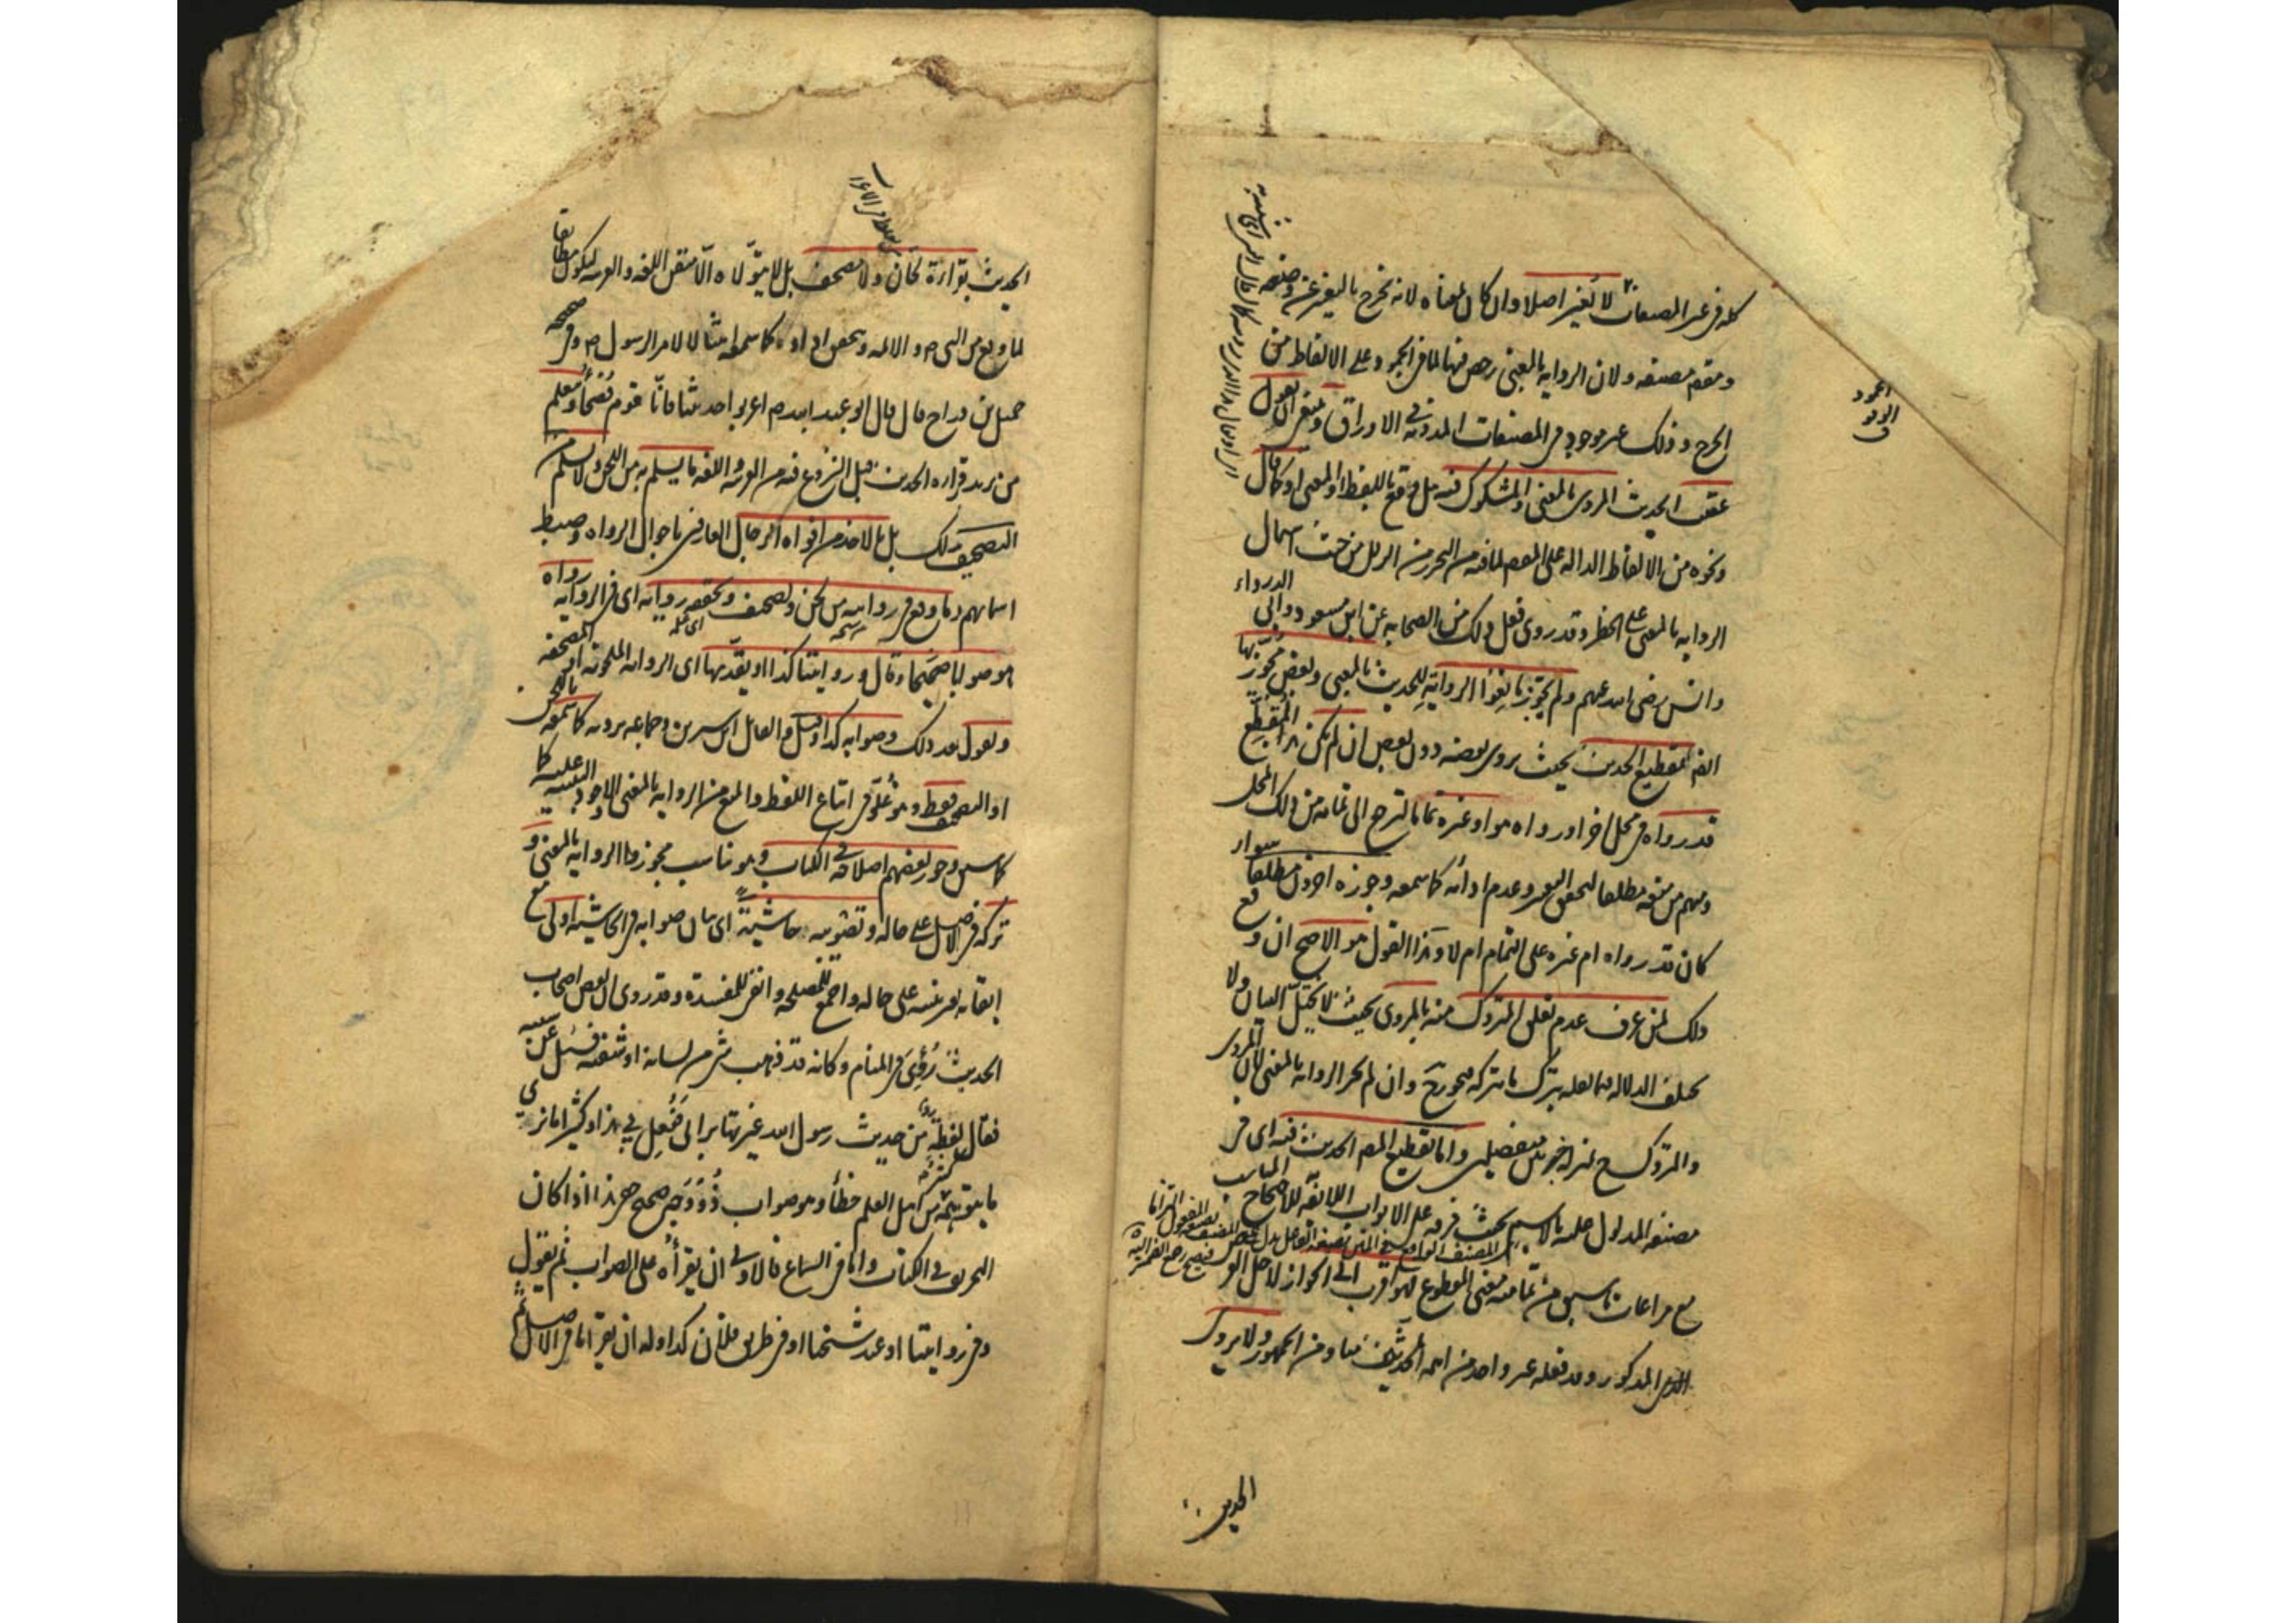 كله في غير المصنفات لا يغير اصلا وان كان بمعناه لانه يخرج بالتغيير عن وضعه
ومقصد مصنفه ولان الرواية بالمعنى رخص فيها لما في الجمود على الالفاظ من
الحرج وذلك غير موجود في المصنفات المدونة في الاوراق وينبغي ان يقول
عقيب الحديث المروى بالمعنى والمشكوك فيه هل وقع باللفظ او المعنى او كما قال
ونحوه من الالفاظ الدالة على المقصود لما فيه من التحرز من الزلل من حيث اشتمال
الرواية بالمعنى على الخطر وقد روى فعل ذلك من الصحابة عن ابن مسعود وابى الدرداء
وانس رضى الله عنهم ولم يجوز مانعوا الرواية للحديث بالمعنى وبعض مجوزيها
ايضا تقطيع الحديث بحيث يروى بعضه دون بعض ان لم يكن هذا المقطع
قد رواه في محل اخر او رواه هو او غيره تماما ليرجع الى تمامه من ذلك المحل
ومنهم من منعه مطلقا لتحقق التغيير وعدم ادائه كما سمعه وجوزه اخرون مطلقا سواء
كان قد رواه ام غيره على التمام ام لا وهذا القول هو الاصح ان وقع
ذلك لمن عرف عدم تعلق المتروك منه بالمروى بحيث لا يختل البيان ولا
تختلف الدلالة فيما نقله بترك ما تركه فيجوز ح وان لم تجز الرواية بالمعنى لان المروى
والمتروك ح بمنزلة خبرين منفصلين واما تقطيع المصنف الحديث فيه اى في
مصنفه المدلول عليه بالاسم بحيث فرقه على الابواب اللائقة للاحتجاج المناسب
مع مراعات ما سبق من تمامية معنى المقطوع فهو اقرب الى الجواز لاجل الغرض
المذكور وقد فعله غير واحد من ائمة الحديث منا ومن الجمهور ولا يروى
الحديث
الحديث بقراءة لحان ولا مصحف بل لا يتولاه الا متقن اللغة والعربية ليكون مطابقا
لما وقع من النبى ص والائمة ويتحقق اداؤه كما سمعه امتثالا لامر الرسول ص وفي صحيحة
جميل بن دراج قال قال ابو عبد الله ع اعربوا حديثنا فانا قوم فصحاء ويعلم
من يريد قراءة الحديث قبل الشروع فيه من العربية واللغة ما يسلم به من اللحن ولا يسلم من
التصحيف بذلك بل بالاخذ من افواه الرجال العارفين باحوال الرواة وضبط
اسمائهم وما وقع في روايته من لحن وتصحيف وتحققه رواه اى في الرواية
صوابا صحيحا وقال وروايتنا كذا او يقدمها اى الرواية الملحونة او المصحفة
ويقول بعد ذلك وصوابه كذا وقيل والقائل ابن سيرين وجماعة يرويه كما سمعه باللحن
او التصحيف فقط وهو غلو في اتباع اللفظ والمنع من الرواية بالمعنى والاجود التنبيه عليه كما
سبق وجوز بعضهم اصلاحه في الكتاب وهو يناسب مجوز الرواية بالمعنى و
تركه في الاصل على حاله وتصويبه حاشية اى بيان صوابه في الحاشية اولى مع
ابقائه في نفسه على حاله واجمع للمصلحة وانفى للمفسدة وقد روى ان بعض اصحاب
الحديث رؤى في المنام وكانه قد ذهب شئ من لسانه او شفته فسئل عن سببه
فقال لفظة من حديث رسول الله غيرتها برايى ففعل بى هذا وكثيرا ما نرى
ما يتوهمه كثير من اهل العلم خطأ وهو صواب ذو وجه صحيح خفى هذا اذا كان
التحريف في الكتاب واما في السماع فالاولى ان يقرأه على الصواب ثم يقول
وفي روايتنا او عند شيخنا او في طريق فلان كذا وله ان يقرأ ما في الاصل ثم